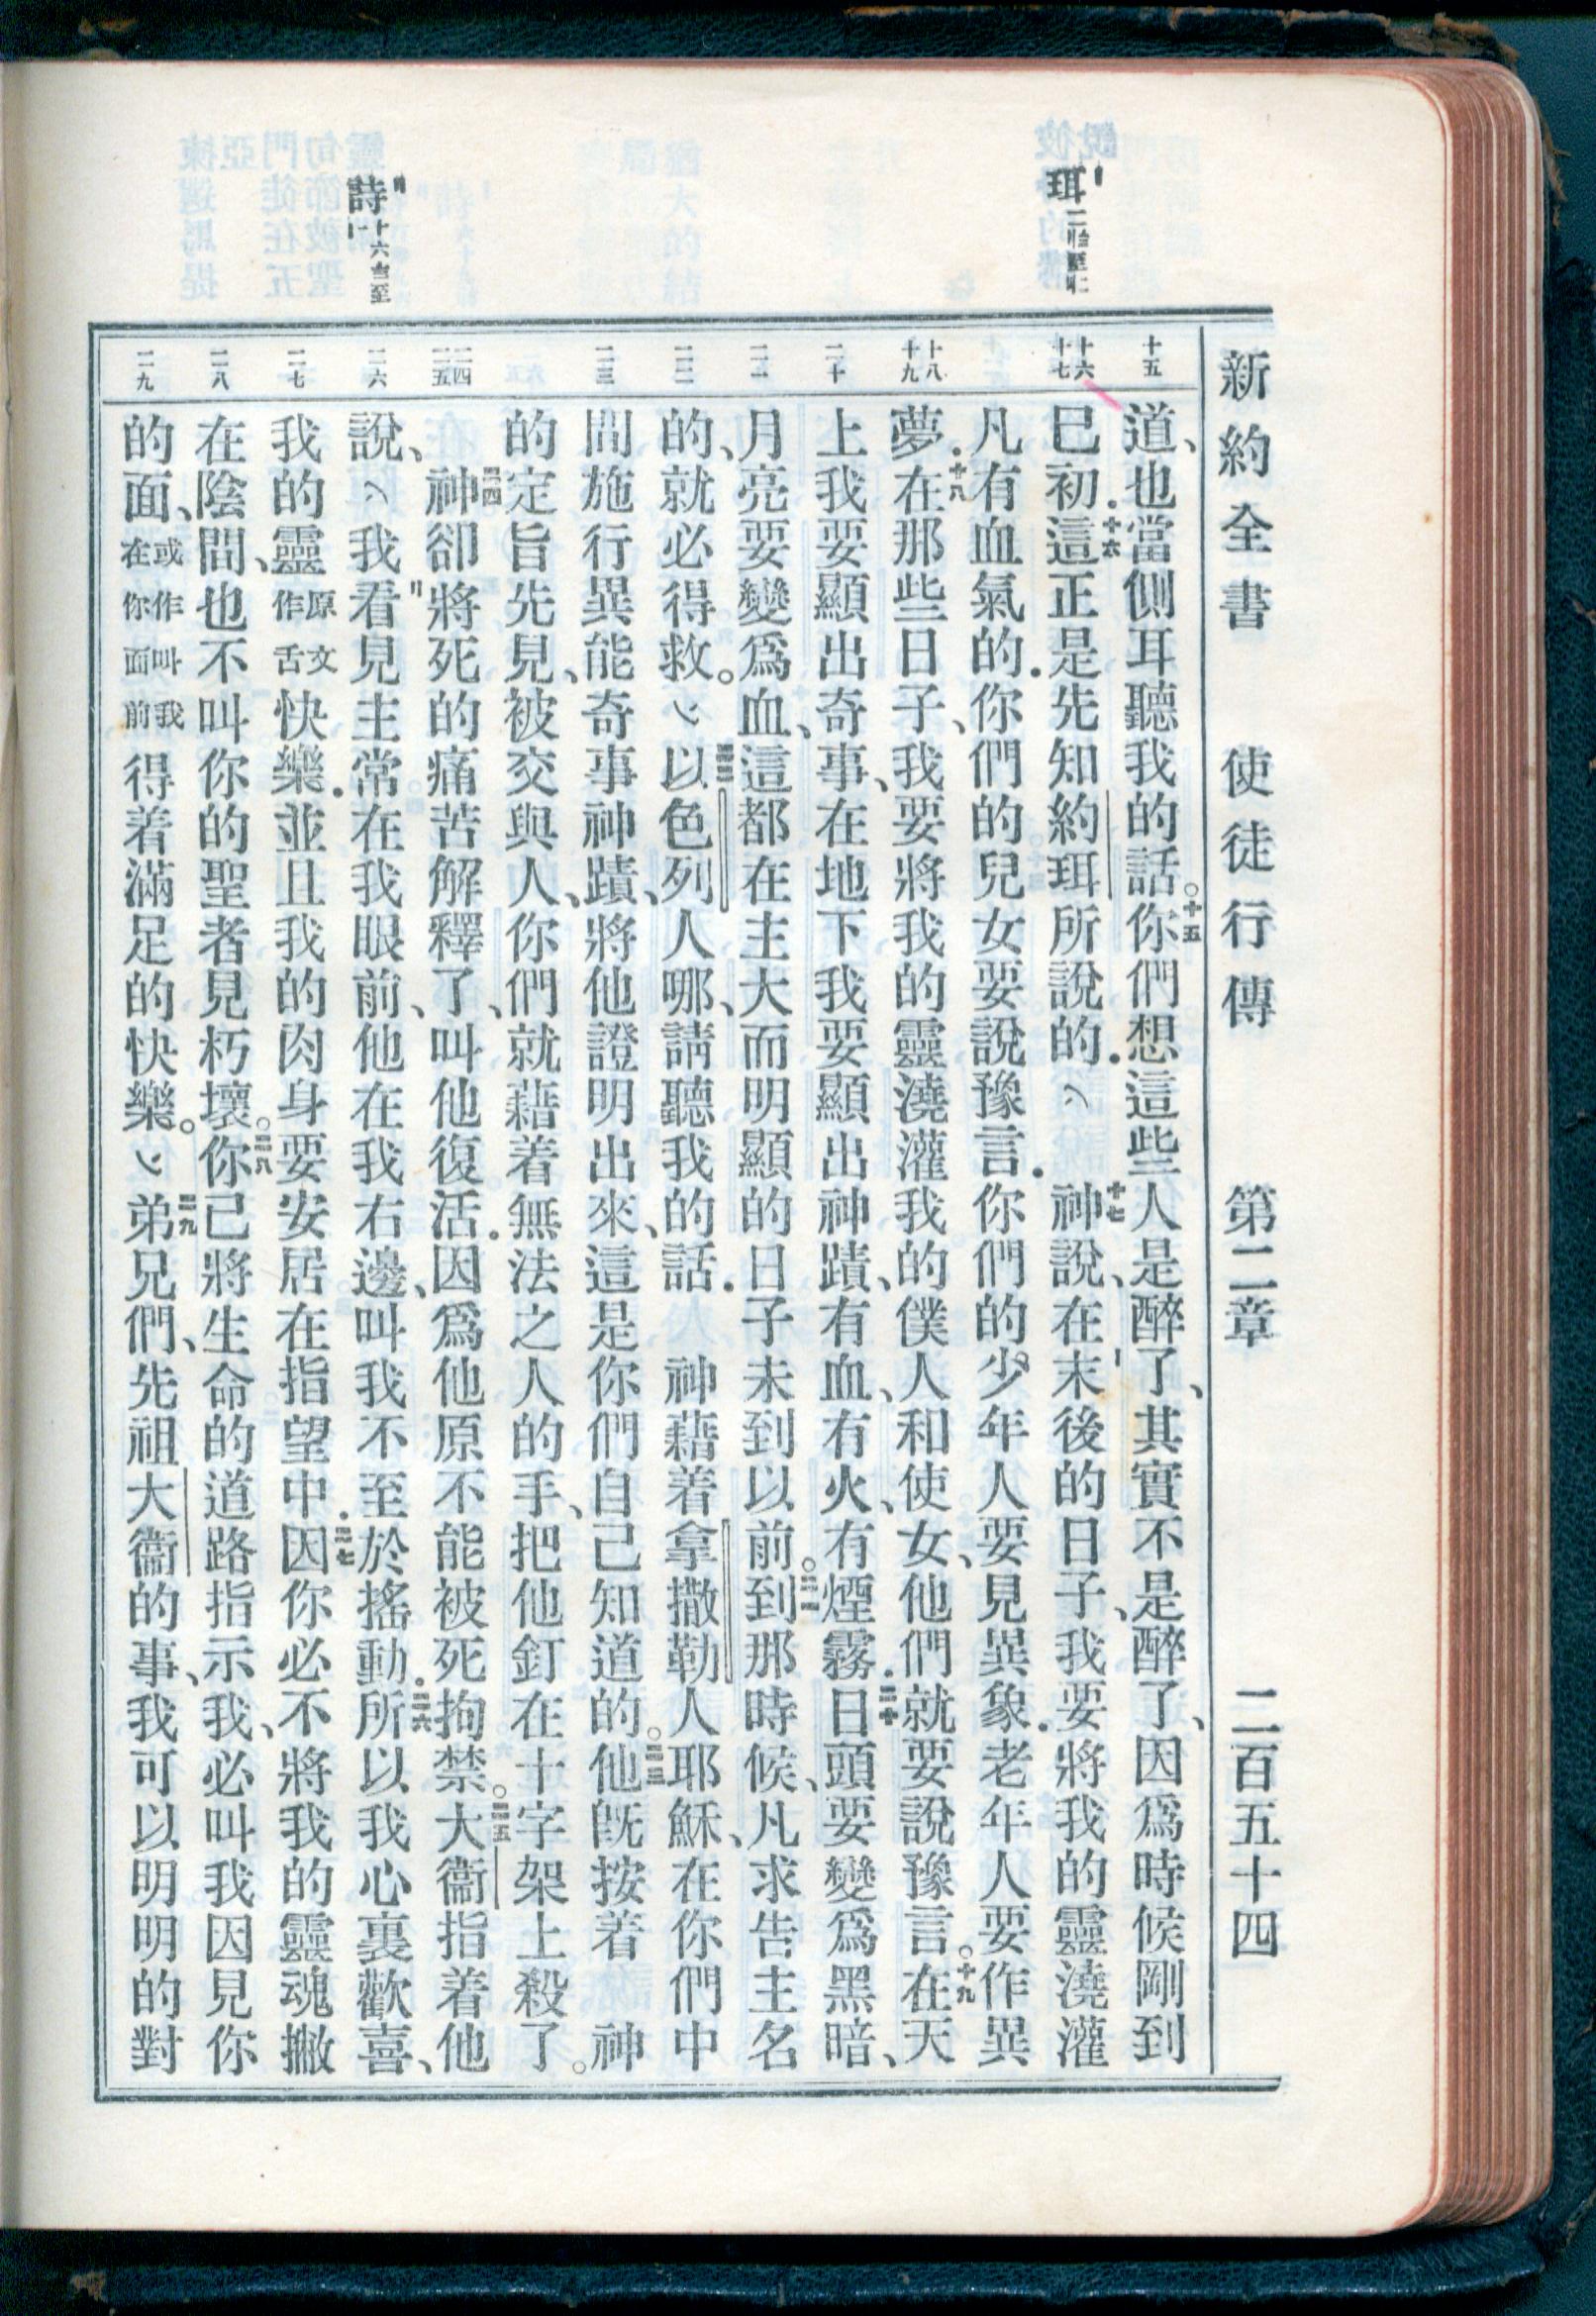 新約全書 使徒行傳 第二章 二百五十四
珥二
詩十六
十五
十六
十七
十八
十九
二十
二一
二二
二三
二四
二五
二六
二七
二八
二九
道、也當側耳聽我的話。十五你們想這些人是醉了、其實不是醉了、因爲時候剛到
巳初．十六這正是先知約珥所說的．十七神說、在末後的日子、我要將我的靈澆灌
凡有血氣的．你們的兒女要說豫言．你們的少年人要見異象．老年人要作異
夢．十八在那些日子、我要將我的靈澆灌我的僕人和使女、他們就要說豫言。十九在天
上我要顯出奇事、在地下我要顯出神蹟、有血、有火、有煙霧．二十日頭要變爲黑暗、
月亮要變爲血、這都在主大而明顯的日子未到以前。二一到那時候、凡求告主名
的、就必得救。二二以色列人哪、請聽我的話．神藉着拿撒勒人耶穌、在你們中
間施行異能奇事神蹟、將他證明出來、這是你們自己知道的。二三他旣按着 神
的定旨先見、被交與人、你們就藉着無法之人的手、把他釘在十字架上殺了。
二四神卻將死的痛苦解釋了、叫他復活．因爲他原不能被死拘禁。二五大衞指着他
說、我看見主常在我眼前、他在我右邊、叫我不至於搖動．二六所以我心裏歡喜、
我的靈原文作舌快樂．並且我的肉身要安居在指望中．二七因你必不將我的靈魂撇
在陰間、也不叫你的聖者見朽壞。二八你已將生命的道路指示我、必叫我因見你
的面、或作叫我在你面前得着滿足的快樂。二九弟兄們、先祖大衞的事、我可以明明的對